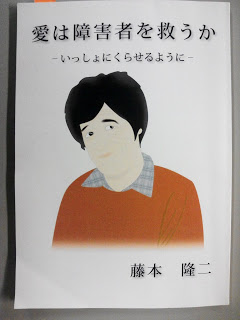 愛は障害者を救うか
－いっしょにくらせるように－
藤本 隆二